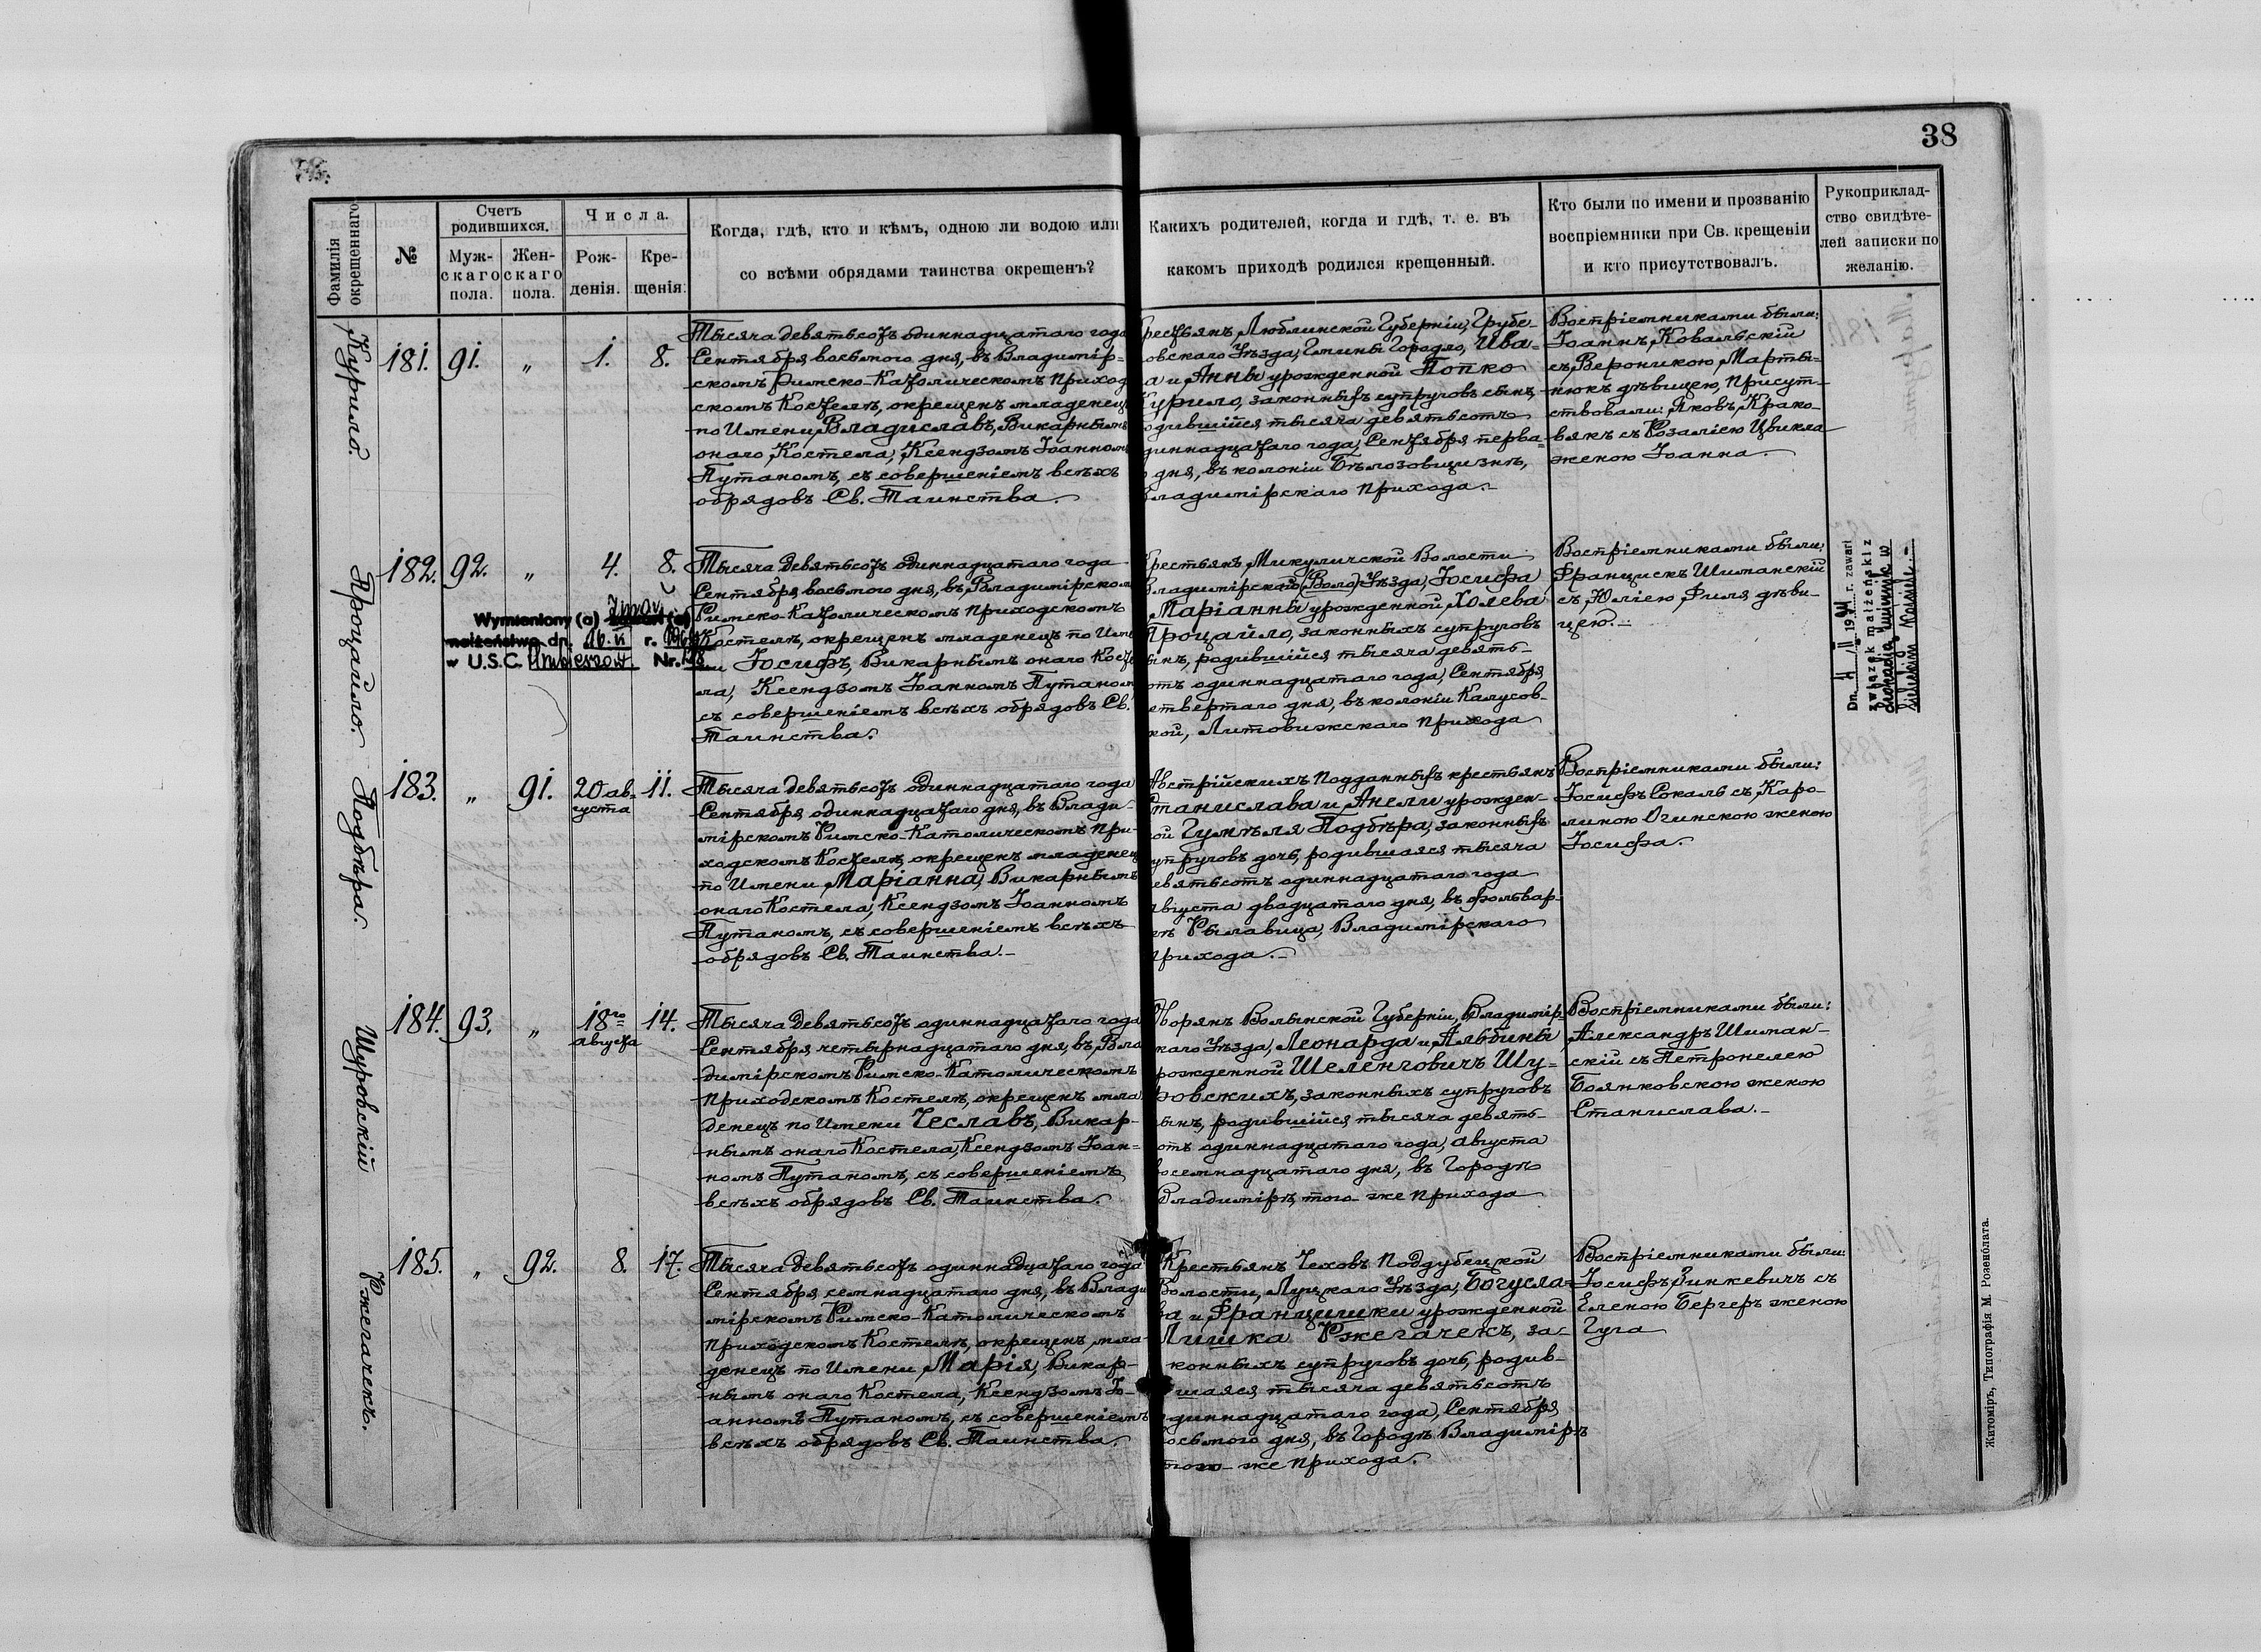 38
Фамилія окрещеннаго.
№
Счетъ родившихся.
Муж-
скаго
пола.
Жен-
скаго
пола.
Числа.
Рож-
денія.
Кре-
щенія.
Когда, гдѣ, кто и кѣмъ, одною ли водою или
со всѣми обрядами таинства окрещенъ?
Какихъ родителей, когда и гдѣ, т. е. въ
какомъ приходѣ родился крещенный.
Кто были по имени и прозванію
воспріемники при Св. крещеніи
и кто присутствовалъ.
Рукоприклад-
ство свидѣте-
лей записки по
желанію.
Курило.
181. 91. „ 1. 8.
Тысяча девятьсотъ одиннадцатаго года
Сентября восьмого дня, въ Владимір-
скомъ Римско-Католическомъ Приход
скомъ Костелѣ, окрещенъ младенецъ
по Имени Владиславъ, Викарнымъ
онаго Костела, Ксендзомъ Іоанномъ
Путаномъ, съ совершеніемъ всѣхъ
обрядовъ Св. Таинства.
рестьянъ, Люблинской Губерніи, Грубе-
овскаго Уѣзда, Гмины Городло, Ива-
а и Анны урожденной Попко
Курило, законныхъ супруговъ сынъ,
одившійся тысяча девятьсотъ
диннадцатаго года, Сентября перва-
дня, въ колоніи Бѣлозовщизнѣ,
ладимірскаго Прихода.-
Воспріемниками были:
Іоаннъ Ковальскій
съ Вероникою Марты-
нюкъ дѣвицею, Присут-
ствовали: Яковъ Крако-
вякъ съ Розаліею Цвикла
женою Іоанна.
Процайло.
182. 92. „ 4. 8.
Wymieniony (a) zmarł
małżeństwo dn. 16. VI r.
w U.S.C. Nr.
Тысяча девятьсотъ одиннадцатаго года
Сентября восьмого дня, въ Владимірском
Римско-Католическомъ Приходскомъ
Костелѣ, окрещенъ младенецъ по Име
ни Іосифъ, Викарнымъ онаго Косте
ла, Ксендзомъ Іоанномъ Путаном
съ совершеніемъ всѣхъ обрядовъ Св.
Таинства.
Крестьянъ, Микуличской Волости
Владимірской (Воло) Уѣзда, Іосифа
Маріанны урожденной Холева
Процайло, законныхъ супруговъ
ынъ, родившійся тысяча девять-
отъ одиннадцатаго года, Сентября
етвертаго дня, въ колоніи Калусов-
кой, Литовижскаго Прихода
Воспріемниками были:
Францискъ Шиманскій
съ Юліею Филя дѣви-
цею.-
Dn. r. zawarł
związek małżeński z
Подбѣра.
183. „ 91. 20 ав-
густа 11.
Тысяча девятьсотъ одиннадцатаго года
Сентября одиннадцатаго дня, въ Влади-
мірскомъ Римско-Католическомъ При-
ходскомъ Костелѣ, окрещенъ младенец
по Имени Маріанна, Викарнымъ
онаго Костела, Ксендзомъ Іоанномъ
Путаномъ, съ совершеніемъ всѣхъ
обрядовъ Св. Таинства.-
Австрійскихъ Подданныхъ крестьянъ
Станислава и Анели урожден-
ой Гумѣля Подбѣра, законныхъ
упруговъ дочь, родившаяся тысяча
евятьсотъ одиннадцатаго года
Августа двадцатаго дня, въ фольвар-
кѣ Рылавица, Владимірскаго
Прихода.-
Воспріемниками были:
Іосифъ Сокаль съ Каро-
линою Огинскою женою
Іосифа.
Шуровскій
184. 93. „ 18го
августа 14.
Тысяча девятьсотъ одиннадцатаго года
Сентября четырнадцатаго дня, въ Вла
димірскомъ Римско-Католическомъ
Приходскомъ Костелѣ, окрещенъ мла
денецъ по Имени Чеславъ, Викар-
нымъ онаго Костела, Ксендзомъ Іоан-
номъ Путаномъ, съ совершеніемъ
всѣхъ обрядовъ Св. Таинства.
Дворянъ Волынской Губерніи, Владимір-
каго Уѣзда, Леонарда и Альбины
рожденной Шеленговичъ Шу-
ровскихъ, законныхъ супруговъ
ынъ, родившійся тысяча девять-
отъ одиннадцатаго года, августа
восемнадцатаго дня, въ Городѣ
Владимірѣ, того-же Прихода
Воспріемниками были:
Александръ Шиман-
скій съ Петронелею
Боянковскою женою
Станислава.-
Ржегачекъ.
185. „ 92. 8. 17.
Тысяча девятьсотъ одиннадцатаго года
Сентября семнадцатаго дня, въ Влади
мірскомъ Римско-Католическомъ
Приходскомъ Костелѣ, окрещенъ мла-
денецъ по Имени Марія, Викар-
нымъ онаго Костела, Ксендзомъ Іо-
анномъ Путаномъ, съ совершеніемъ
всѣхъ обрядовъ Св. Таинства.
Крестьянъ Чеховъ Поддубецкой
Волости, Луцкаго Уѣзда, Богусла-
ва и Францишки урожденной
Лишка Ржегачекъ, за-
конныхъ супруговъ дочь, родив-
шаяся тысяча девятьсотъ
диннадцатаго года, Сентября
осьмого дня, въ Городѣ Владимірѣ
того-же Прихода.
Воспріемниками были:
Іосифъ Зинкевичъ съ
Еленою Бергеръ женою
Гуга
Житоміръ, Типографія М. Розенблата.